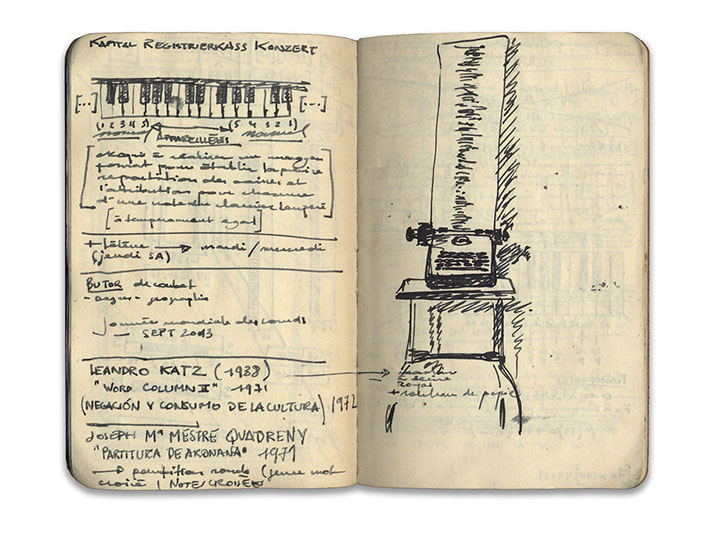 KAPITAL REGISTRIERKASS KONZERT
[...] [...]
(1 2 3 4 5) (5 4 3 2 1)
normal APPAREILLÉES normal
à réaliser un
format pour établir la
répartition des caisses et
l'attribution pour chacune
d'une note du clavier tempéré
[à tempérament égal]
+ Hélène → mardi / mercredi
(jeudi SA)
BUTOR de combat
- - géographie
Journée mondiale des sourds
— SEPT 2013
LEANDRO KATZ (1938)
"WORD COLUMN II" 1971
(NEGACIÓN Y CONSUMO DE LA CULTURA) 1972
JOSEPH Mª MESTRE QUADRENY
"PARTITURA DE AKONANA" 1971
→ partition ronde (genre mot
croisé / NOTES CROISÉES
machine
à écrire
Royal
+ rouleau de papier